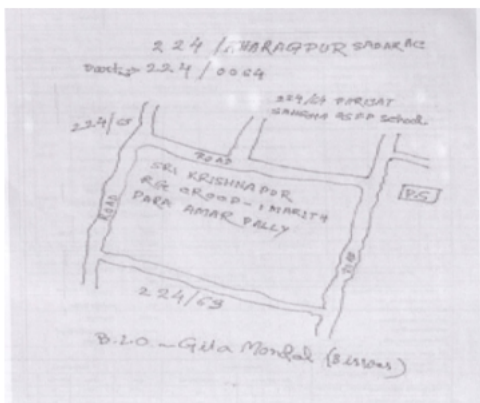 224 / KHARAGPUR SADAR AC
Part- 224 / 0064
224/64 PARIJAT
SANGHA School
224/65
ROAD
SRI KRISHNAPUR
P.S
PARA AMAR PALLY
ROAD
ROAD
224/69
B.L.O - Gita Mondal